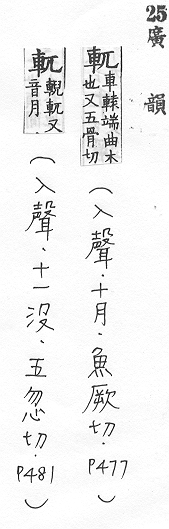 25廣韻
軏車轅端曲木也又五骨切(入聲·十月·魚厥切·P477)
軏輗軏又音月(入聲·十一沒·五忽切·P481)